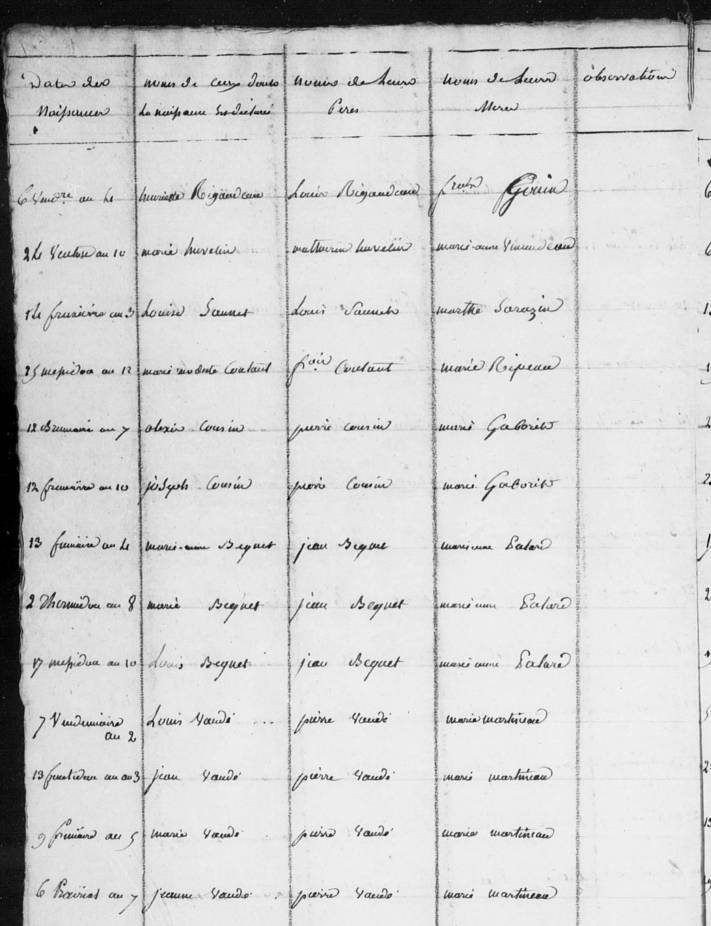 Dates des
Naissances
noms de ceux dont
La naissance est déclaré
noms de Leurs
Peres
noms de Leurs
Meres
observations
6 Vend.re an 4 Rigaudeau Louis Rigaudeau fr.oise Gouin
24 Ventose an 10 marie huvelin mathurin huvelin marie-anne Vincendeau
14 frimaire an 3 Louise Saunet Louis Saunet marthe Sarazin
25 messidor an 12 marie modeste Coutant f.çois Coutant marie Ripeau
12 Brumaire an 7 alexis Cousin pierre cousin marie Gaborit
12 frimaire an 10 joseph Cousin pierre Cousin marie Gaborit
13 frimaire an 4 marie-anne Bequet jean Bequet marianne Palard
2 Thermidor an 8 marie Bequet jean Bequet marie anne Palard
17 messidor an 10 Louis Bequet jean Bequet marie anne Palard
7 Vendemiaire
an 2
Louis Vaudé pierre Vaudé marie martineau
13 fructidor an 3 jean Vaudé pierre Vaudé marie martineau
9 frimaire an 5 marie Vaudé pierre Vaudé marie martineau
6 Prairial an 7 jeanne Vaudé pierre Vaudé marie martineau